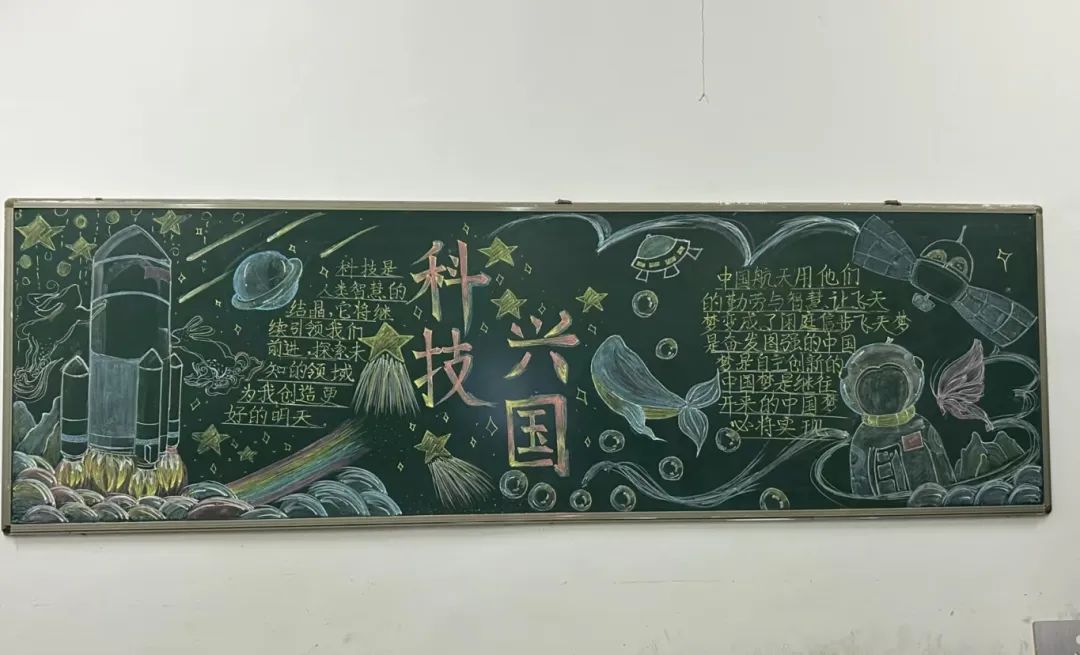 科技是
人类智慧的
结晶,它将继
续引领我们
前进,探索未
知的领域
为我创造更
好的明天
科技
兴国
中国航天用他们
的勤劳与智慧,让飞天
梦变成了闲庭信步飞天梦
是奋发图强的中国
梦是自主创新的
中国梦是继往
开来的中国梦
必将实现